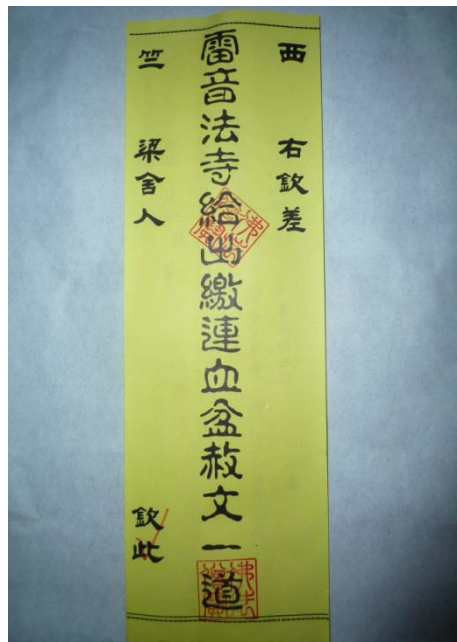 西 右欽差
雷音法寺給出繳連血盆赦文一道
竺 梁舍人 欽此